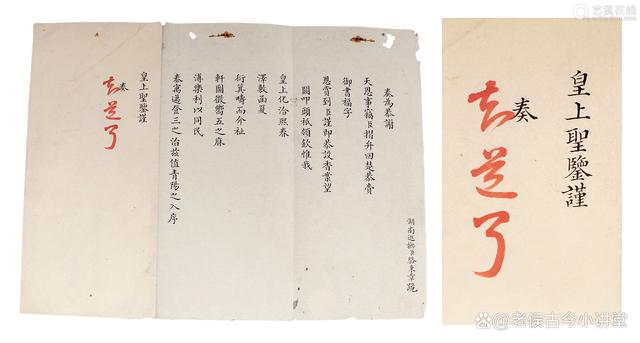 湖南巡撫臣駱秉章跪
奏為恭謝
天恩事竊臣摺弁回楚恭賫
御書福字
恩賞到臣謹即恭設香案望
闕叩頭祗領欽惟我
皇上化洽熙春
澤敷函夏
衍箕疇而介祉
軒圖徵嚮五之庥
溥樂利以同民
泰寓邁登三之治茲值青陽之入序
皇上聖鑒謹
奏
知道了
皇上聖鑒謹
奏
知道了
艺狐在线
@老侯古今小讲堂